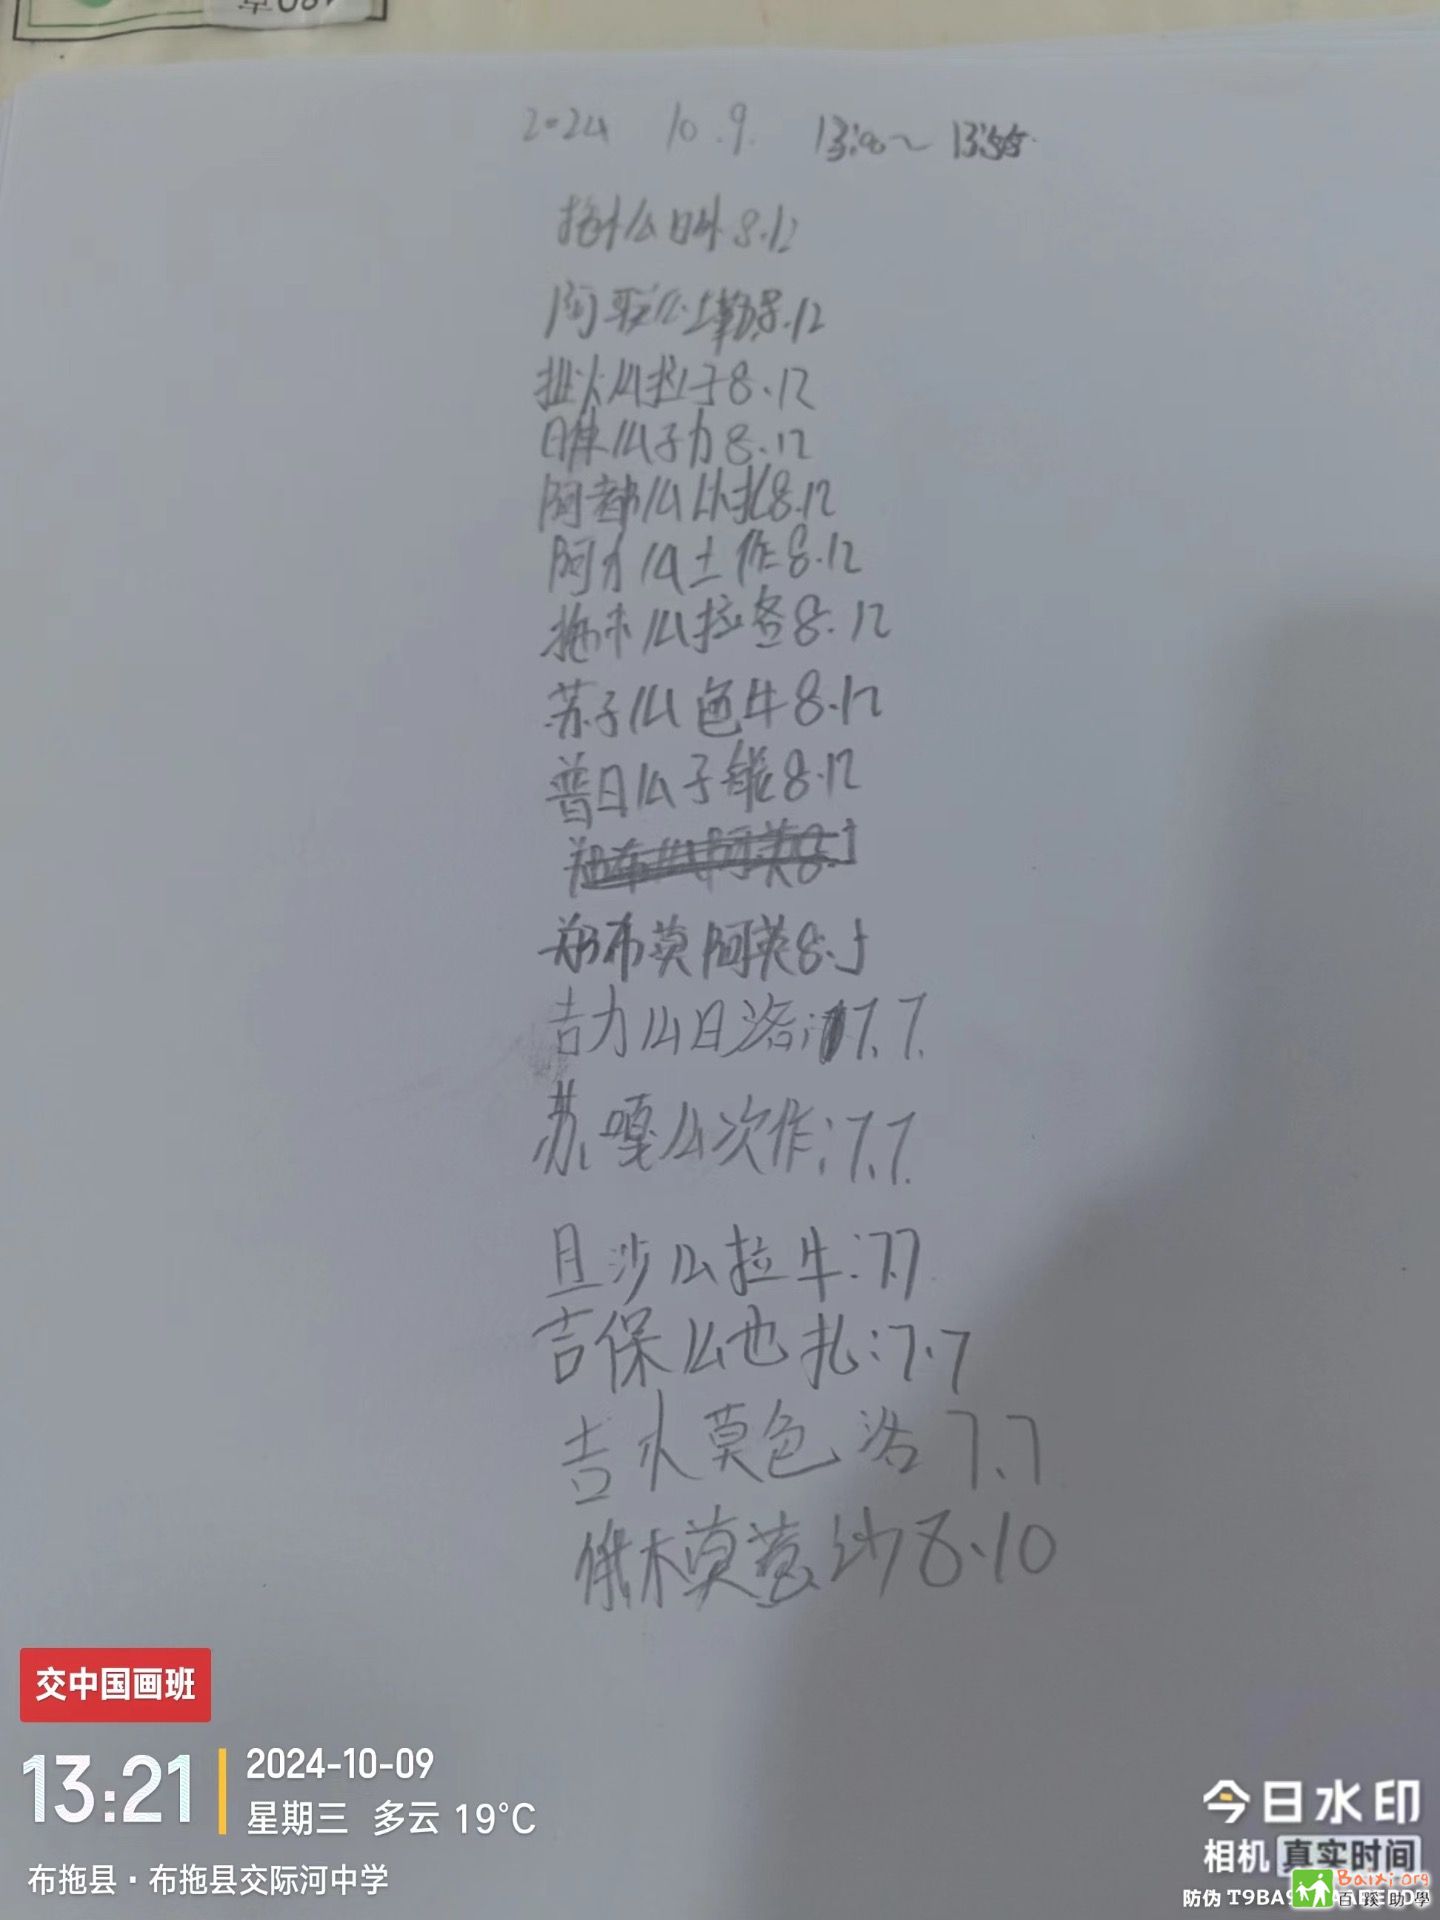 2024 10.9. 13:00~13:55
么日 8.12
阿 么 勒 8.12
么拉子8.12
么子力8.12
阿都么以扎8.12
阿 么土作8.12
拖木么拉各8.12
苏子么色牛8.12
普日么子 8.12
郑布莫阿英8.5
吉力么日洛:7.7.
苏嘎么次作:7.7.
且沙么拉牛:7.7
吉保么也扎:7.7
吉 莫色洛7.7
俄木莫 沙8.10
交中国画班
13:21
2024-10-09
星期三 多云 19°C
布拖县·布拖县交际河中学
今日水印
相机 真实时间
防伪 T9BA9
Baixi.org
百蹊助學